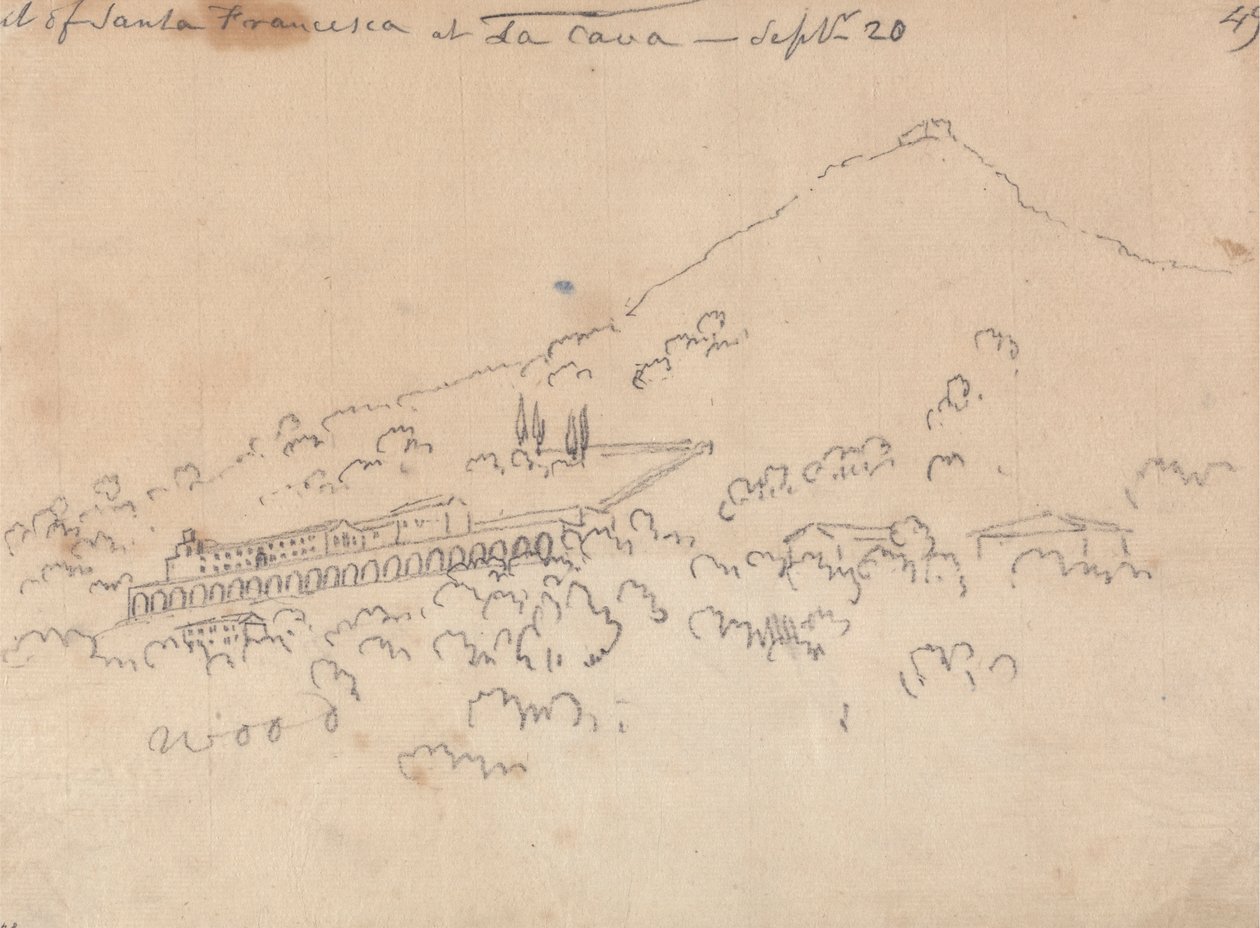 it of Santa Francesca at La Cava — Septbr 20
wood